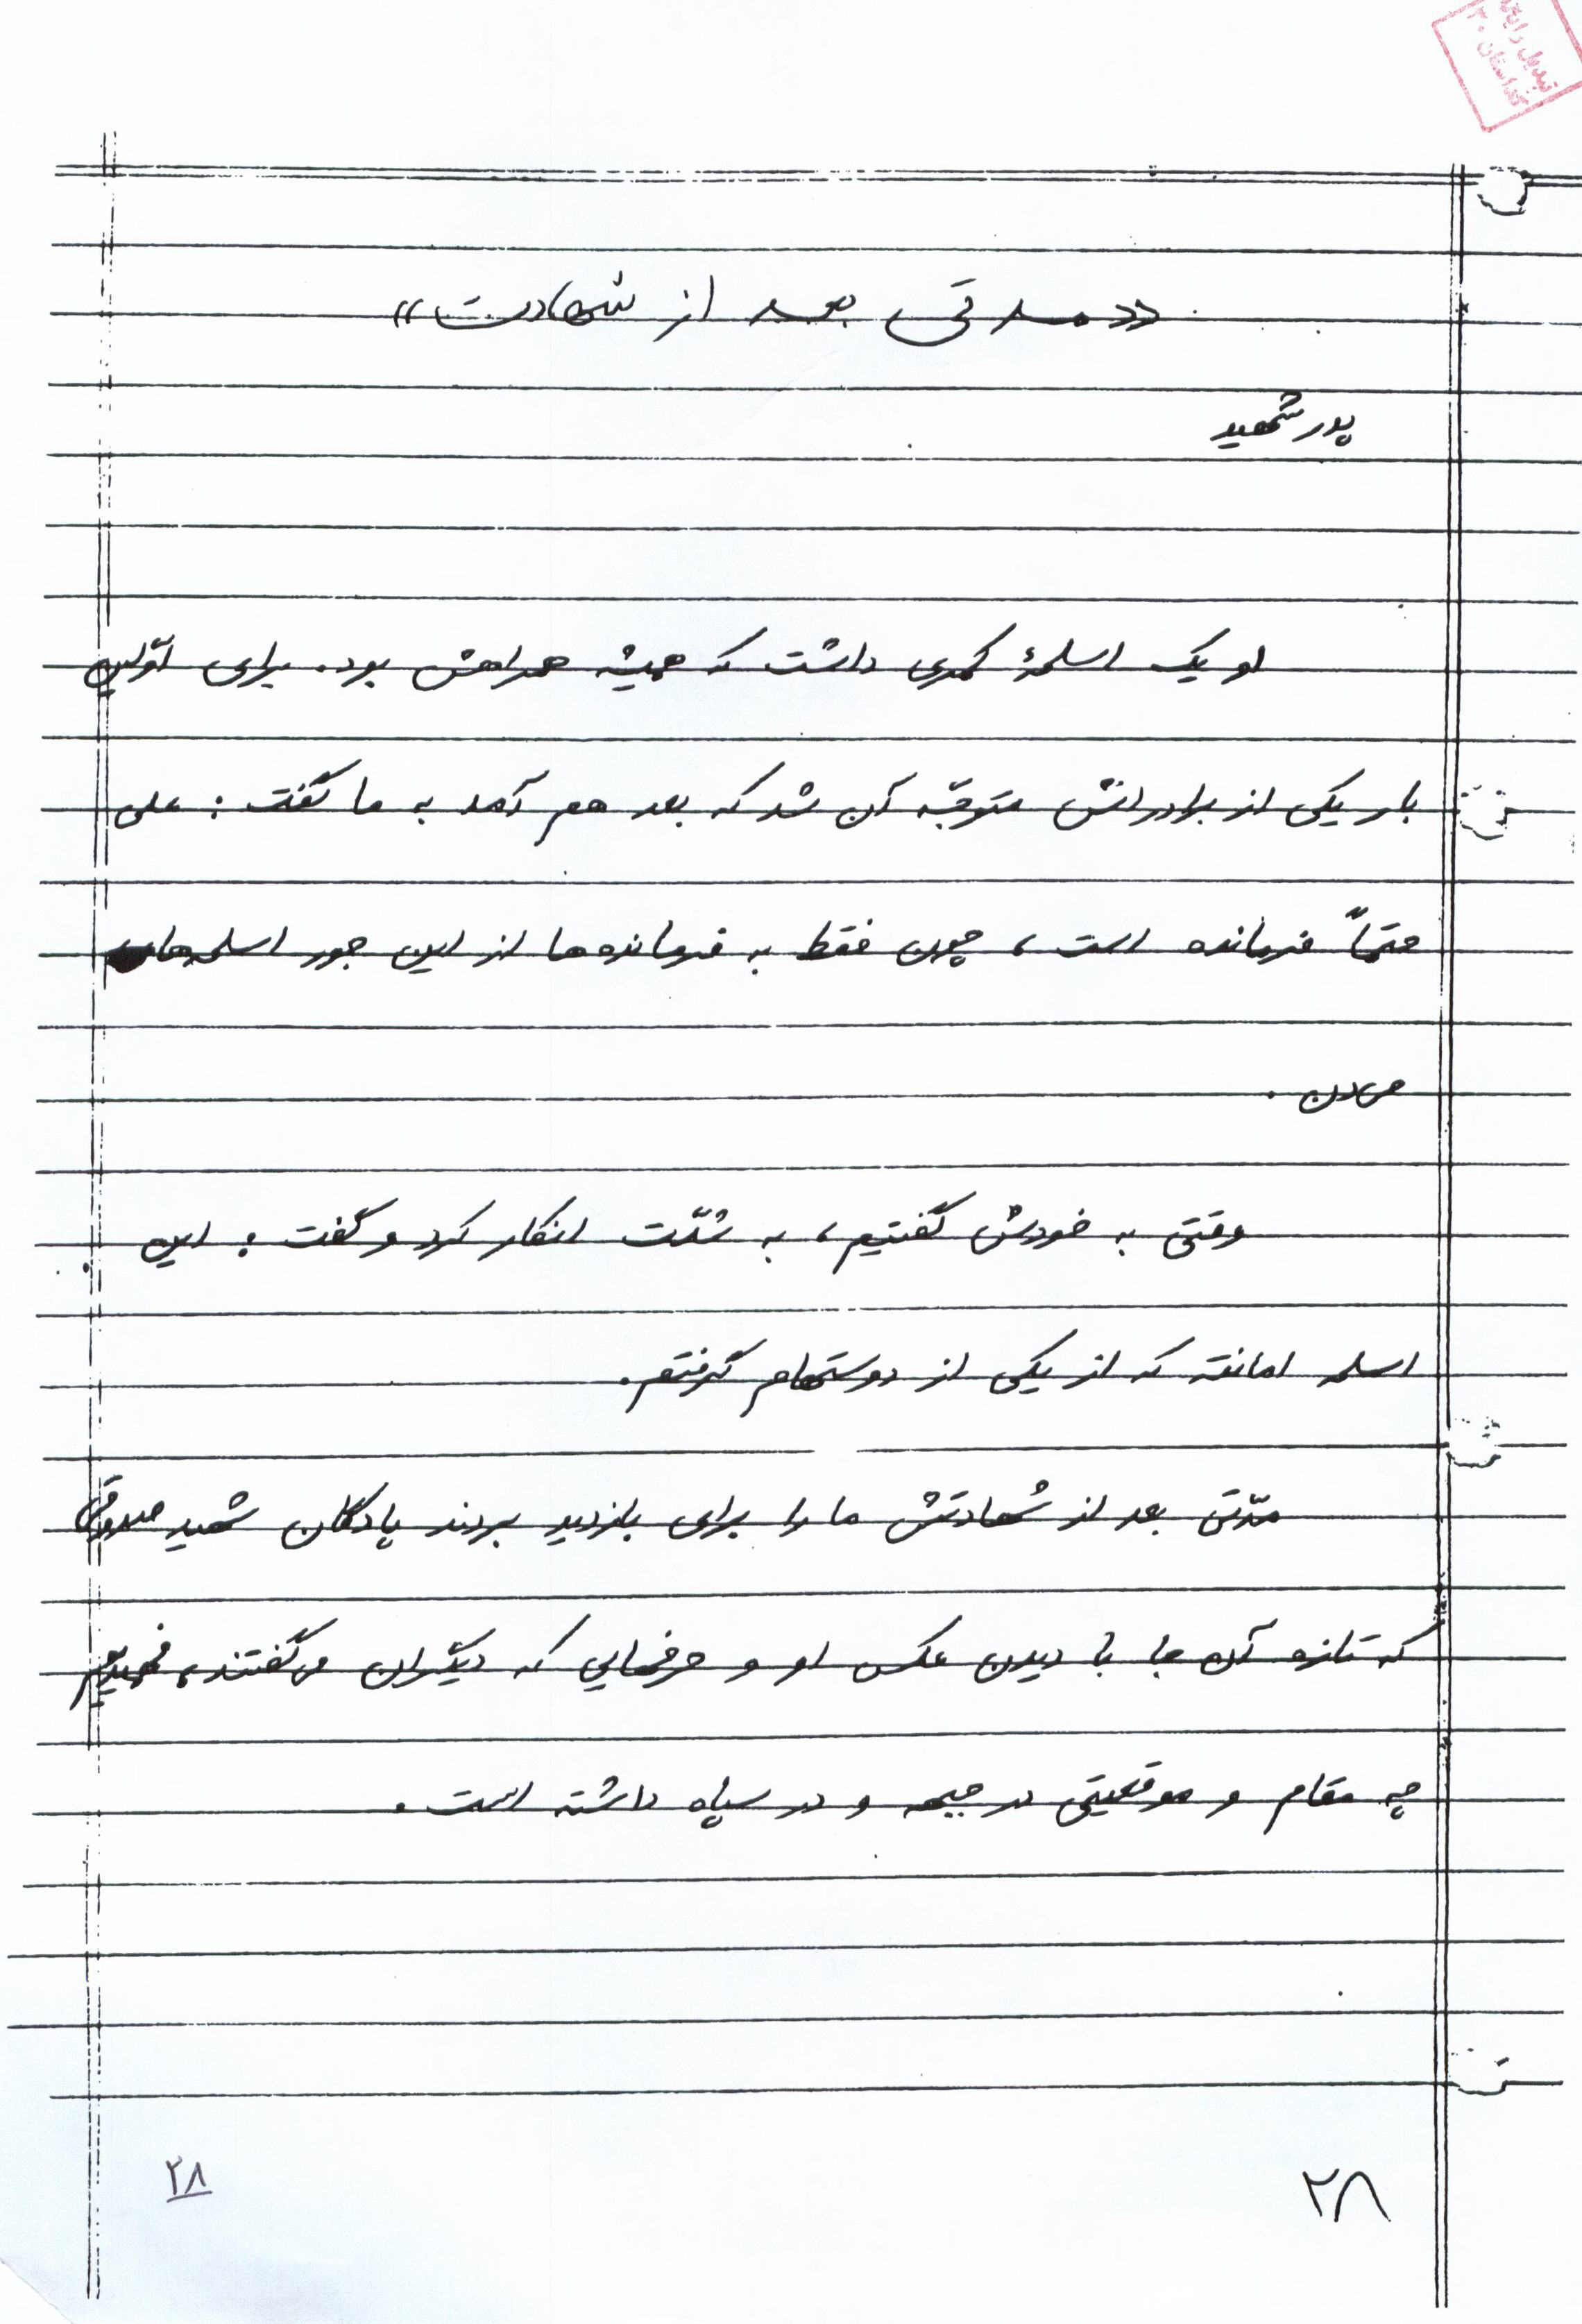 «مدتی بعد از شهادت»
پدر شهید
او یک اسلحهٔ کمری داشت که همیشه همراهش بود. برای اوّلین
بار یکی از برادرانش متوجّه آن شد که بعد هم آمد به ما گفت: علی
حتماً فرمانده است، چون فقط به فرمانده‌ها از این جور اسلحه‌ها
می‌دن.
وقتی به خودش گفتیم، به شدّت انکار کرد و گفت: این
اسلحه امانته که از یکی از دوستهام گرفتم.
مدّتی بعد از شهادتش ما را برای بازدید بردند پادگان شهید صدوقی
که تازه آن جا با دیدن عکس او و حرفهایی که دیگران می‌گفتند، فهمیدیم
چه مقام و موقعیتی در جبهه و در سپاه داشته است.
۲۸
۲۸